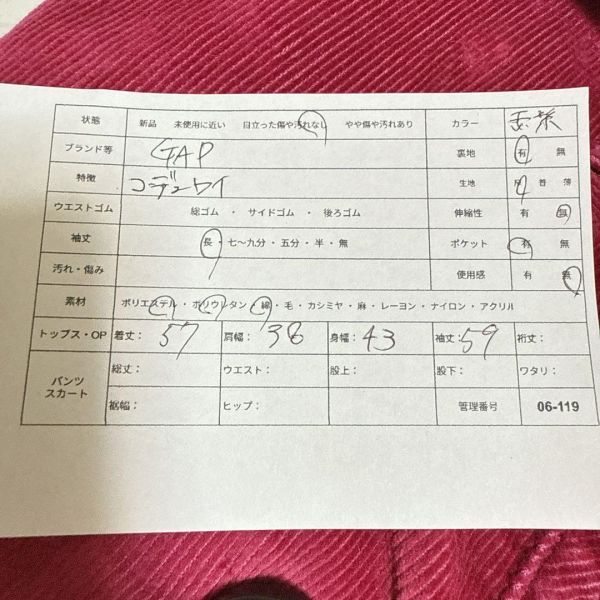 状態 新品 未使用に近い 目立った傷や汚れなし やや傷や汚れあり カラー
ブランド等 GAP 裏地 有 無
特徴 コーデュロイ 生地 厚 普 薄
ウエストゴム 総ゴム ・ サイドゴム ・ 後ろゴム 伸縮性 有 無
袖丈 長・七〜九分・五分・半・無 ポケット 有 無
汚れ・傷み 使用感 有 無
素材 ポリエステル・ポリウレタン・綿・毛・カシミヤ・麻・レーヨン・ナイロン・アクリル
トップス・OP 着丈: 57 肩幅: 38 身幅: 43 袖丈: 59 裄丈:
パンツ スカート 総丈: ウエスト: 股上: 股下: ワタリ:
裾幅: ヒップ: 管理番号 06-119